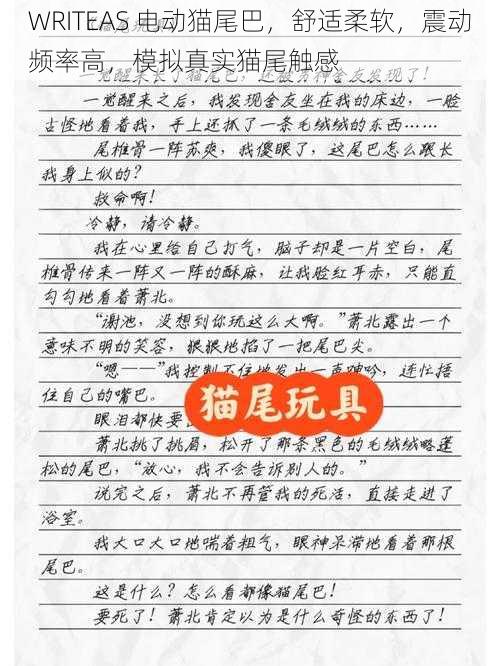 WRITEAS 电动猫尾巴，舒适柔软，震动
频率高，模拟真实猫尾触感
一觉醒来长了猫尾巴，还被男神舍友发现了！
一觉醒来之后，我发现舍友坐在我的床边，一脸
古怪地看着我，手上还抓了一条毛绒绒的东西……
尾椎骨一阵苏爽，我傻眼了，这尾巴怎么跟长
我身上似的？
救命啊！
冷静，请冷静。
我在心里给自己打气，脑子却是一片空白，尾
椎骨传来一阵又一阵的酥麻，让我脸红耳赤，只能直
勾勾地看着萧北。
“谢池，没想到你玩这么大啊。”萧北露出一个
意味不明的笑容，狠狠地掐了一把尾巴尖。
“嗯——”我控制不住地发出一声呻吟，连忙捂
住自己的嘴巴。
猫尾玩具
眼泪都快要
萧北挑了挑眉，松开了那条黑色的毛绒绒略蓬
松的尾巴，“放心，我不会告诉别人的。”
说完之后，萧北不再管我的死活，直接走进了
浴室。
我大口大口地喘着粗气，眼神呆滞地看着那根
尾巴。
这是什么？怎么看都像猫尾巴！
要死了！萧北肯定以为是什么奇怪的东西了！